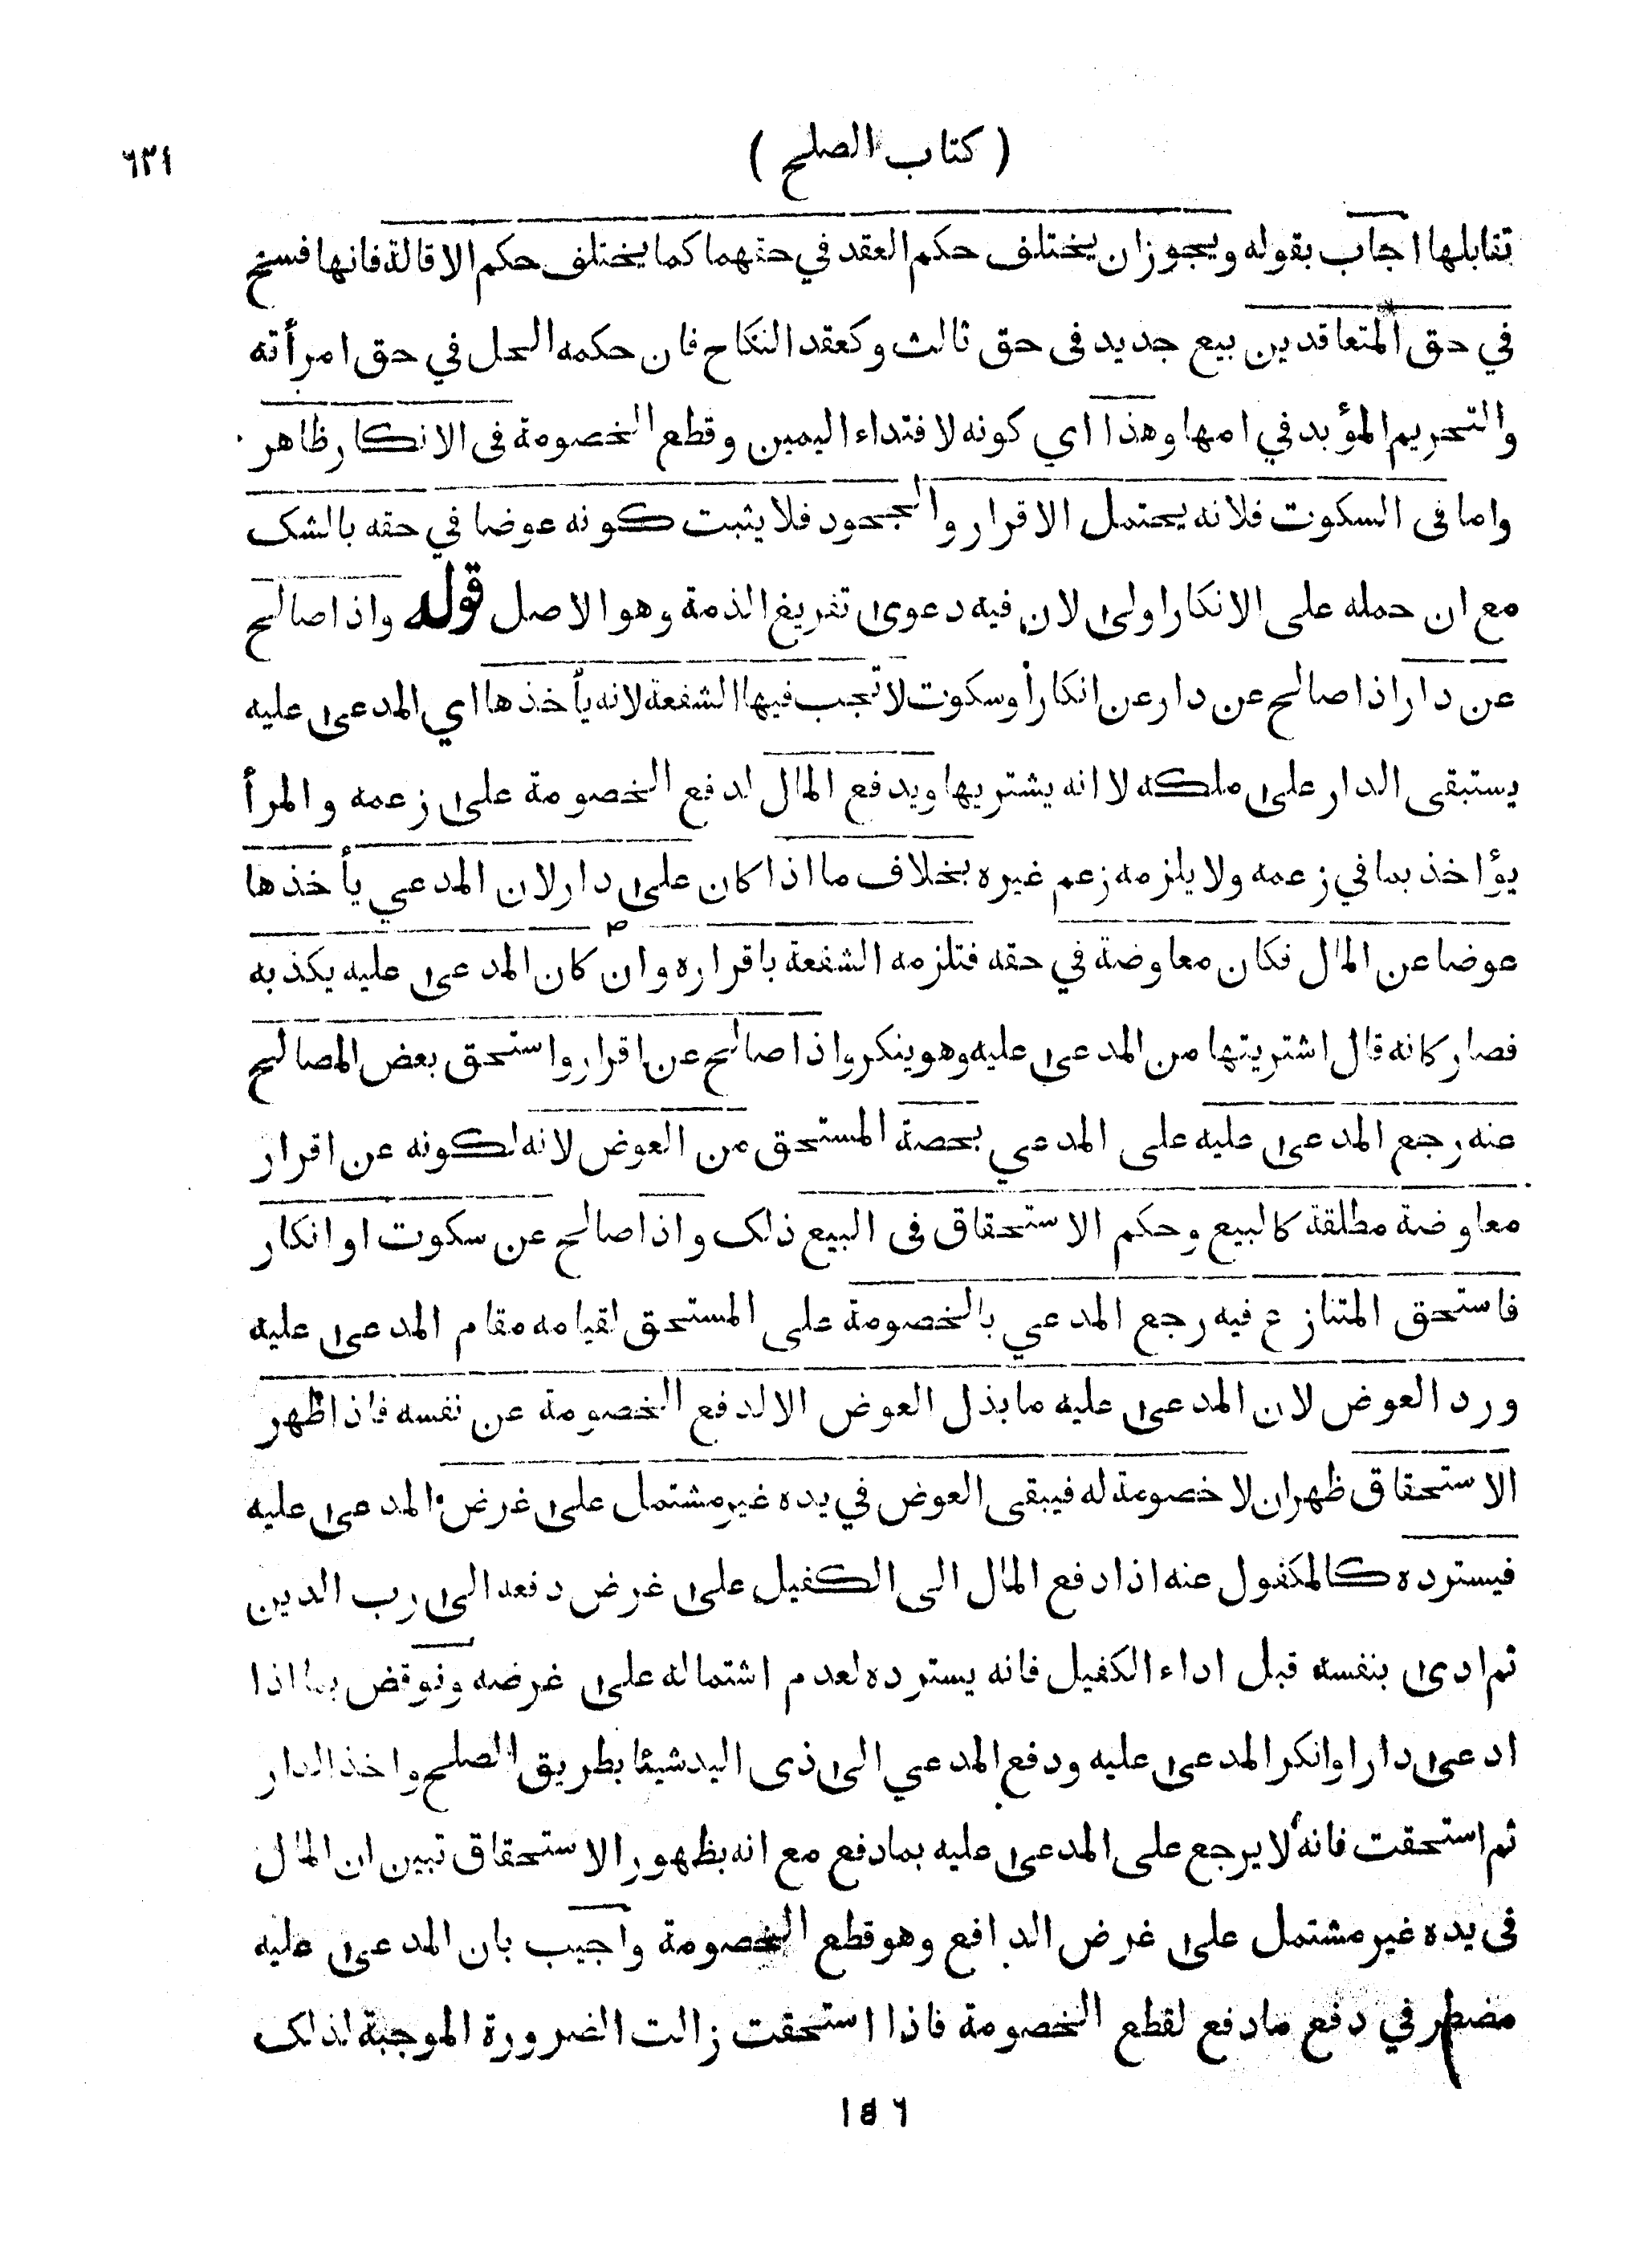 ( كتاب الصلح )
٦٢١
تقابلها اجاب بقوله ويجوز ان يختلف حكم العقد في حقهما كما يختلف حكم الاقالة فانها فسخ
في حق المتعاقدين بيع جديد فى حق ثالث وكعقد النكاح فان حكمه الحل في حق امرأته
والتحريم المؤبد في امها وهذا اي كونه لافتداء اليمين وقطع الخصومة فى الانكار ظاهر
واما فى السكوت فلانه يحتمل الاقرار والجحود فلا يثبت كونه عوضا في حقه بالشك
مع ان حمله على الانكار اولى لان فيه دعوى تفريغ الذمة وهو الاصل قوله واذا صالح
عن دار اذا صالح عن دار عن انكار أوسكوت لا تجب فيها الشفعة لانه يأخذها اي المدعى عليه
يستبقى الدار على ملكه لا انه يشتريها ويدفع المال لدفع الخصومة على زعمه والمرأ
يؤاخذ بما في زعمه ولا يلزمه زعم غيره بخلاف ما اذا كان على دار لان المدعي يأخذها
عوضا عن المال فكان معاوضة في حقه فتلزمه الشفعة باقراره وان كان المدعى عليه يكذبه
فصار كانه قال اشتريتها من المدعى عليه وهو ينكر واذا صالح عن اقرار واستحق بعض المصالح
عنه رجع المدعى عليه على المدعي بحصة المستحق من العوض لانه لكونه عن اقرار
معاوضة مطلقة كالبيع وحكم الاستحقاق فى البيع ذلك واذا صالح عن سكوت او انكار
فاستحق المتنازع فيه رجع المدعي بالخصومة على المستحق لقيامه مقام المدعى عليه
ورد العوض لان المدعى عليه ما بذل العوض الا لدفع الخصومة عن نفسه فاذا ظهر
الاستحقاق ظهر ان لا خصومة له فيبقى العوض في يده غير مشتمل على غرض المدعى عليه
فيسترده كالمكفول عنه اذا دفع المال الى الكفيل على غرض دفعه الى رب الدين
ثم ادى بنفسه قبل اداء الكفيل فانه يسترده لعدم اشتماله على غرضه ونوقض بما اذا
ادعى دارا وانكر المدعى عليه ودفع المدعي الى ذى اليد شيئا بطريق الصلح واخذ الدار
ثم استحقت فانه لا يرجع على المدعى عليه بما دفع مع انه بظهور الاستحقاق تبين ان المال
فى يده غير مشتمل على غرض الدافع وهو قطع الخصومة واجيب بان المدعى عليه
مضطر في دفع ما دفع لقطع الخصومة فاذا استحقت زالت الضرورة الموجبة لذلك